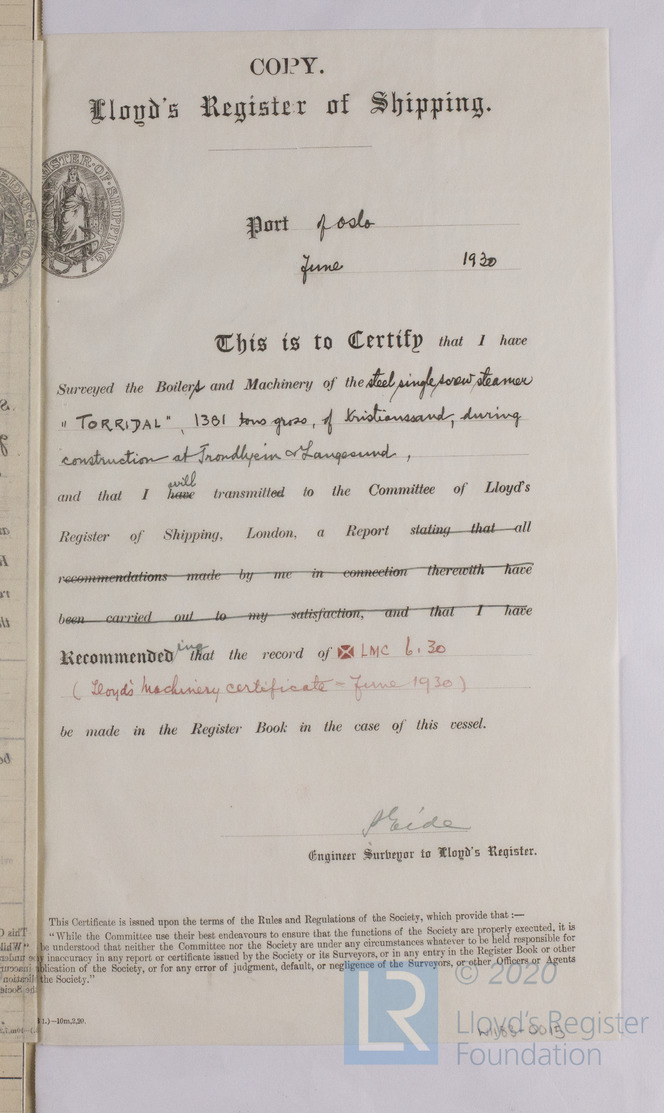 COPY.
Lloyd's Register of Shipping.
Port of Oslo
June 1930
This is to Certify that I have
Surveyed the Boilers and Machinery of the steel, single screw, steamer
"TORRIDAL", 1381 tons gross, of Kristianssand, during
construction at Trondhjem & Langesund,
will
and that I have transmitted to the Committee of Lloyd's
Register of Shipping, London, a Report stating that all
recommendations made by me in connection therewith have
been carried out to my satisfaction, and that I have
Recommended ing that the record of LMC 6.30
(Lloyd's Machinery certificate - June 1930)
be made in the Register Book in the case of this vessel.
Eide
Engineer Surveyor to Lloyd's Register.
This Certificate is issued upon the terms of the Rules and Regulations of the Society, which provide that :—
"While the Committee use their best endeavours to ensure that the functions of the Society are properly executed, it is
be understood that neither the Committee nor the Society are under any circumstances whatever to be held responsible for
inaccuracy in any report or certificate issued by the Society or its Surveyors, or in any entry in the Register Book or other
blication of the Society, or for any error of judgment, default, or negligence of the Surveyors, or other Officers or Agents
the Society."
—10m,3,20.
LR
© 2020
Lloyd's Register
Foundation